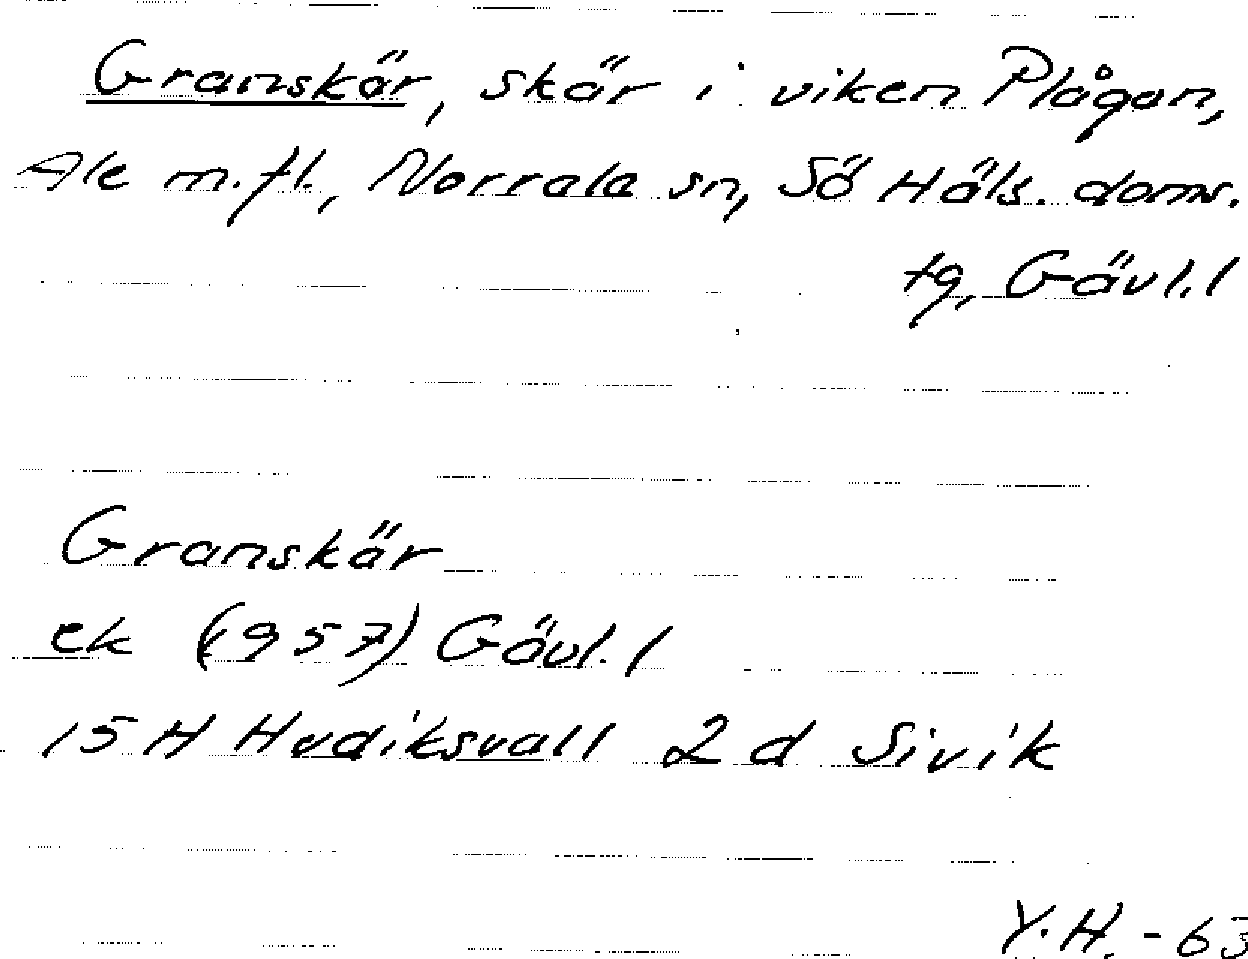 Granskär, skär i viken Plågan,
Ale m.fl., Norrala sn, Sö Häls. doms.
tg, Gävl.l
Granskär
ek (1957) Gävl.l
15 H Hudiksvall 2 d Sivik
Y.H. - 63